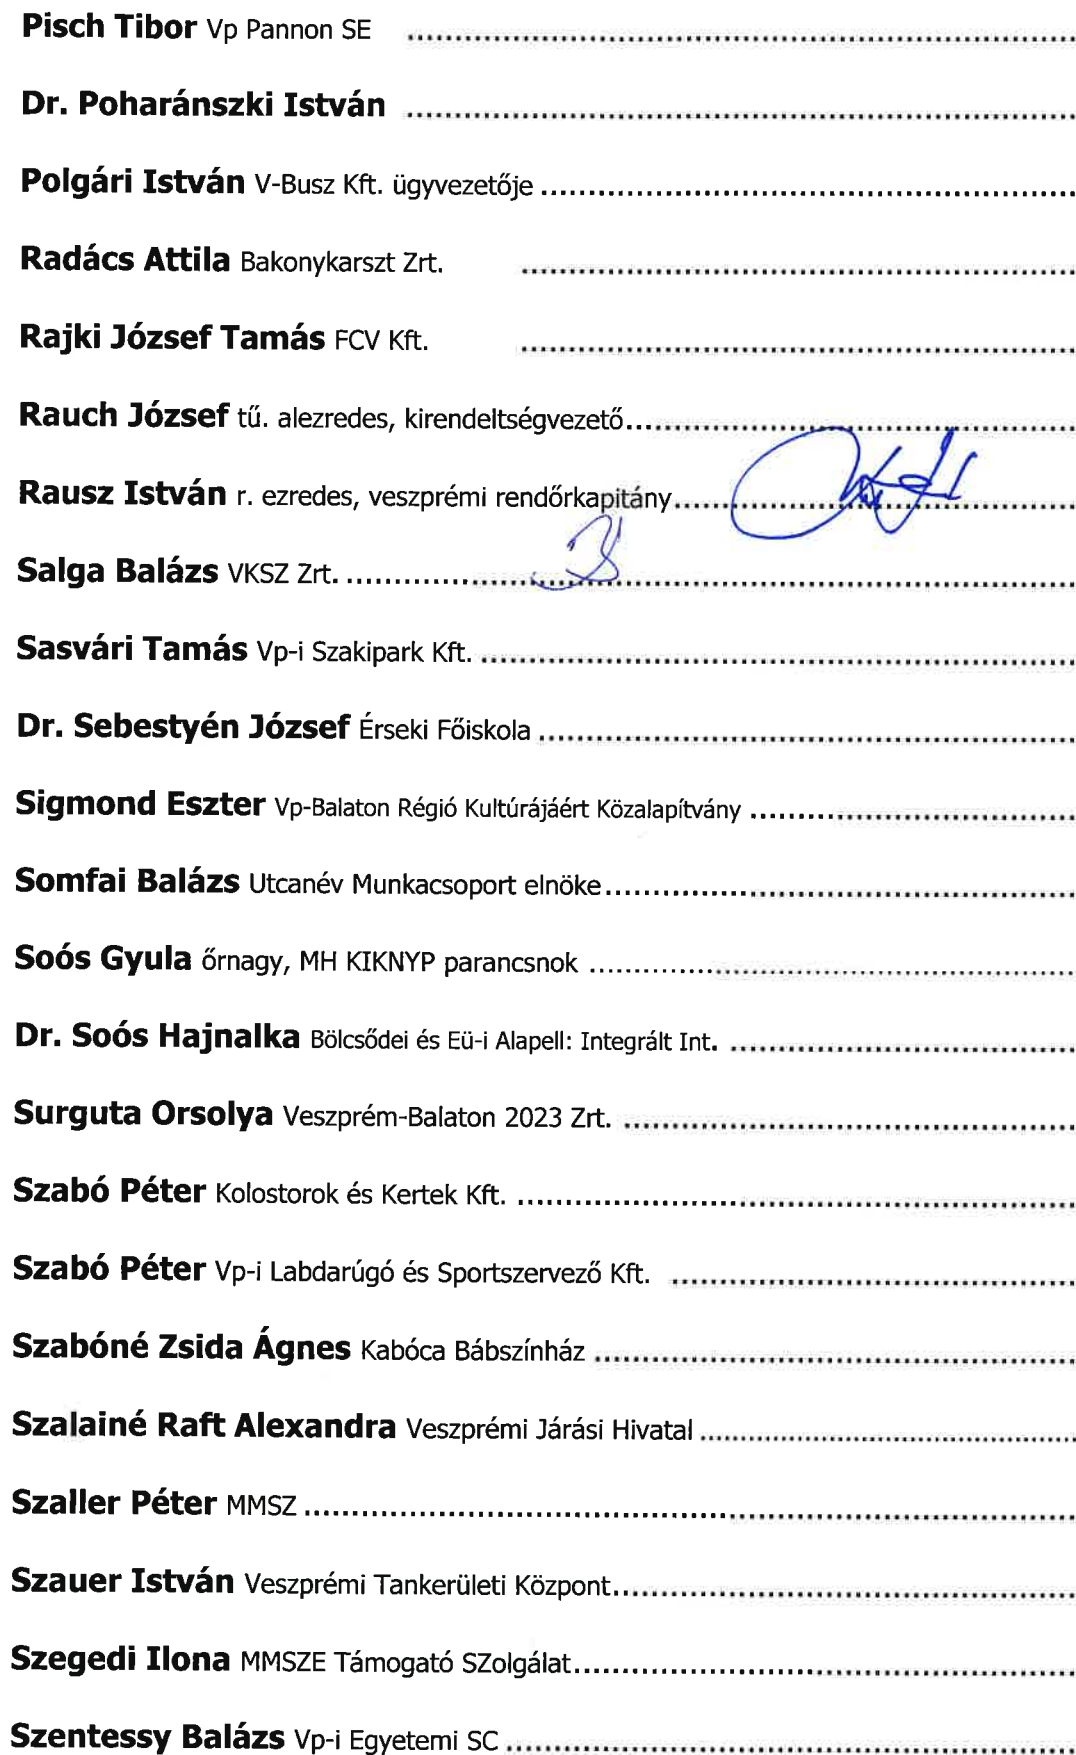 Pisch Tibor Vp Pannon SE ........................................
Dr. Poharánszki István ........................................
Polgári István V-Busz Kft. ügyvezetője ........................................
Radács Attila Bakonykarszt Zrt. ........................................
Rajki József Tamás FCV Kft. ........................................
Rauch József tű. alezredes, kirendeltségvezető........................................
Rausz István r. ezredes, veszprémi rendőrkapitány........................................
Salga Balázs VKSZ Zrt. ........................................
Sasvári Tamás Vp-i Szakipark Kft. ........................................
Dr. Sebestyén József Érseki Főiskola ........................................
Sigmond Eszter Vp-Balaton Régió Kultúrájáért Közalapítvány ........................................
Somfai Balázs Utcanév Munkacsoport elnöke........................................
Soós Gyula őrnagy, MH KIKNYP parancsnok ........................................
Dr. Soós Hajnalka Bölcsődei és Eü-i Alapell: Integrált Int. ........................................
Surguta Orsolya Veszprém-Balaton 2023 Zrt. ........................................
Szabó Péter Kolostorok és Kertek Kft. ........................................
Szabó Péter Vp-i Labdarúgó és Sportszervező Kft. ........................................
Szabóné Zsida Ágnes Kabóca Bábszínház ........................................
Szalainé Raft Alexandra Veszprémi Járási Hivatal ........................................
Szaller Péter MMSZ ........................................
Szauer István Veszprémi Tankerületi Központ........................................
Szegedi Ilona MMSZE Támogató SZolgálat........................................
Szentessy Balázs Vp-i Egyetemi SC ........................................